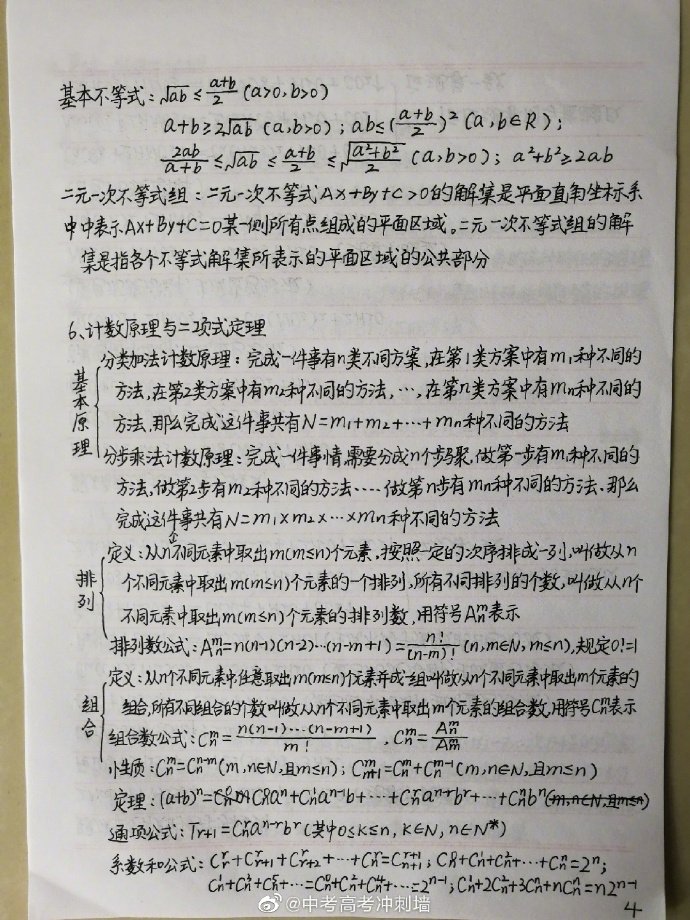 基本不等式：√ab ≤ (a+b)/2 (a>0, b>0)
a+b≥2√ab (a,b>0)；ab≤((a+b)/2)² (a,b∈R)；
2ab/(a+b) ≤ √ab ≤ (a+b)/2 ≤ √((a²+b²)/2) (a,b>0)；a²+b²≥2ab
二元一次不等式组：二元一次不等式Ax+By+C>0的解集是平面直角坐标示系
中中表示Ax+By+C=0某一侧所有点组成的平面区域。二元一次不等式组的解
集是指各个不等式解集所表示的平面区域的公共部分
6、计数原理与二项式定理
基本原理
分类加法计数原理：完成一件事有n类不同方案，在第1类方案中有m₁种不同的
方法，在第2类方案中有m₂种不同的方法，…，在第n类方案中有mₙ种不同的
方法，那么完成这件事共有N=m₁+m₂+…+mₙ种不同的方法
分步乘法计数原理：完成一件事情，需要分成n个步骤，做第一步有m₁种不同的
方法，做第2步有m₂种不同的方法……做第n步有mₙ种不同的方法、那么
完成这件事共有N=m₁×m₂×…×mₙ种不同的方法
排列
定义：从n不同元素中取出m(m≤n)个元素，按照一定的次序排成一列，叫做从n
个
个不同元素中取出m(m≤n)个元素的一个排列，所有不同排列的个数，叫做从n个
不同元素中取出m(m≤n)个元素的排列数，用符号Aₙᵐ表示
排列数公式：Aₙᵐ=n(n-1)(n-2)…(n-m+1)=n!/(n-m)! (n,m∈N, m≤n)，规定0!=1
组合
定义：从n个不同元素中，任意取出m(m≤n)个元素并成一组叫做从n个不同元素中取出m个元素的
组合，所有不同组合的个数叫做从n个不同元素中取出m个元素的组合数，用符号Cₙᵐ表示
组合数公式：Cₙᵐ=n(n-1)…(n-m+1)/m!，Cₙᵐ=Aₙᵐ/Aₘᵐ
性质：Cₙᵐ=Cₙⁿ⁻ᵐ(m,n∈N,且m≤n)；Cₘ₊₁ᵐ=Cₙᵐ+Cₙᵐ⁻¹(m,n∈N,且m≤n)
定理：(a+b)ⁿ=Cₙ⁰aⁿ+Cₙ¹aⁿ⁻¹b+…+Cₙʳaⁿ⁻ʳbʳ+…+Cₙⁿbⁿ(m,n∈N,且m≤n)
通项公式：Tᵣ₊₁=Cₙʳaⁿ⁻ʳbʳ(其中0≤k≤n, k∈N, n∈N*)
系数和公式：Cᵣʳ+Cᵣ₊₁ʳ+Cᵣ₊₂ʳ+…+Cₙʳ=Cₙ₊₁ʳ⁺¹；Cₙ⁰+Cₙ¹+Cₙ²+…+Cₙⁿ=2ⁿ；
Cₙ¹+Cₙ³+Cₙ⁵+…=Cₙ⁰+Cₙ²+Cₙ⁴+…=2ⁿ⁻¹；Cₙ¹+2Cₙ²+3Cₙ³+nCₙⁿ=n2ⁿ⁻¹
4
@中考高考冲刺墙